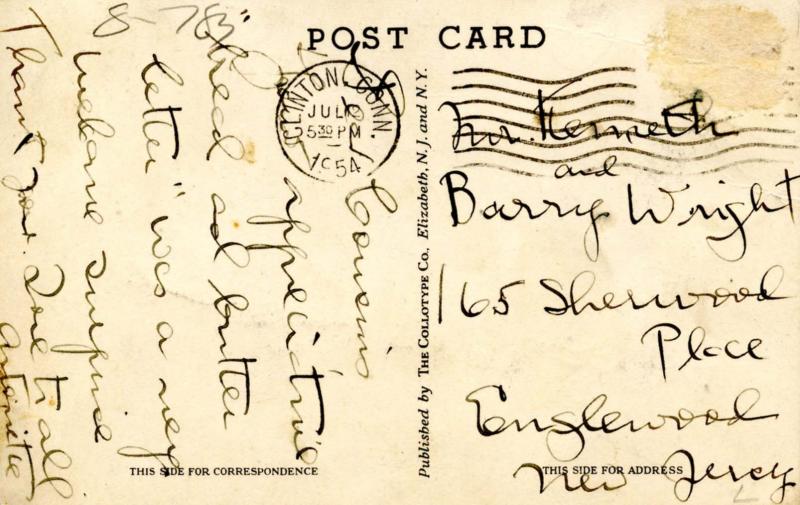 POST CARD
CLINTON, CONN.
JUL
5 30 PM
1954
Kenneth
and
Barry Wright
165 Sherwood
Place
Englewood
New Jersey
THIS SIDE FOR ADDRESS
Published by THE COLLOTYPE CO., Elizabeth, N. J. and N. Y.
Cousins
appreciative
bread and butter
letter" was a very
welcome surprise
Thank you. Love to all
THIS SIDE FOR CORRESPONDENCE